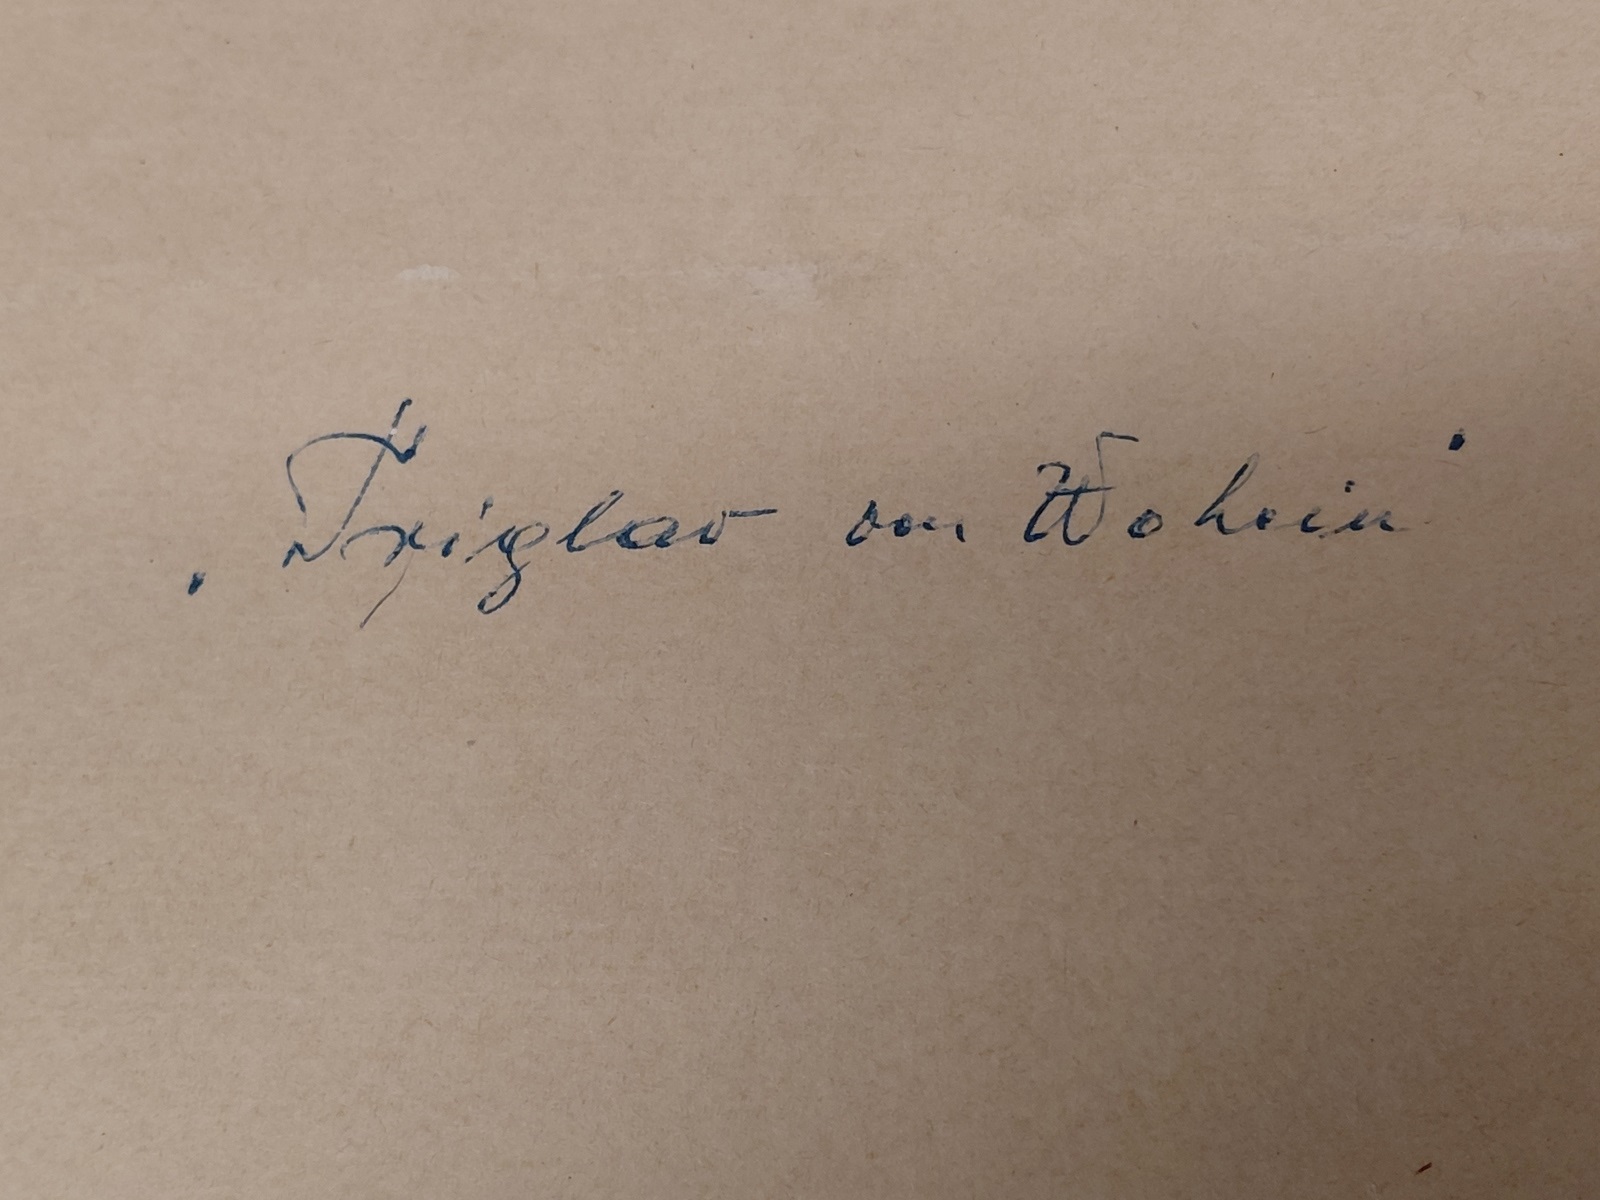 "Triglav von Wohein"